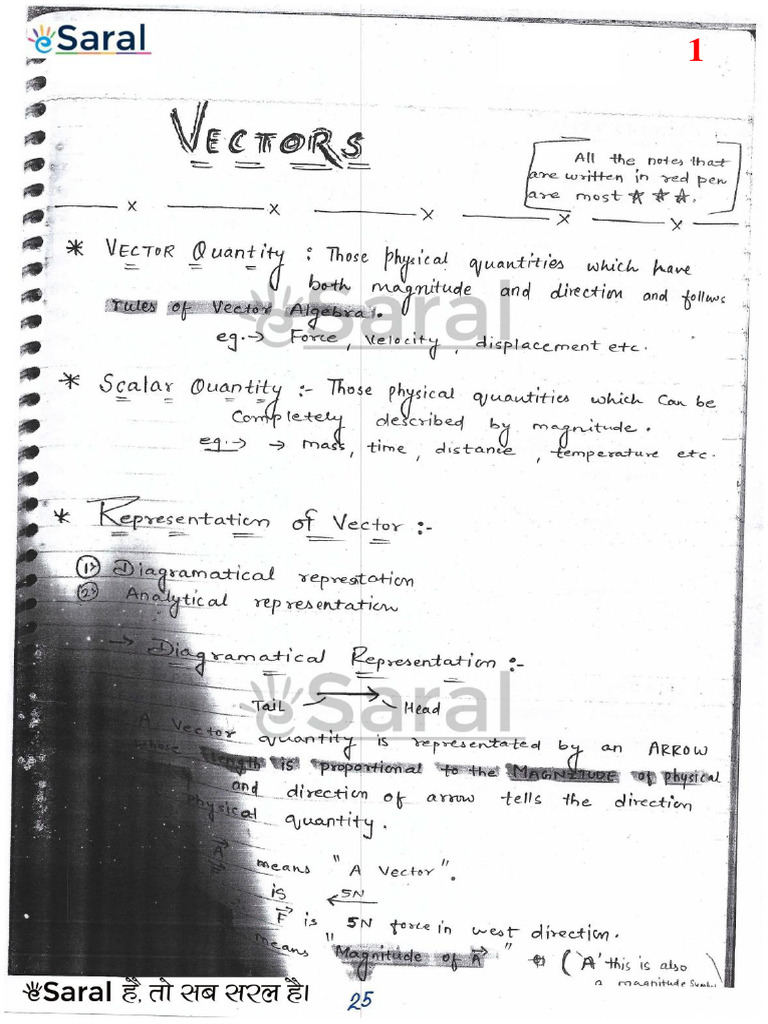 eSaral
1
VECTORS
All the notes that
are written in red pen
are most ☆ ☆ ☆.
* VECTOR Quantity : Those physical quantities which have
both magnitude and direction and follows
rules of Vector Algebra.
eg.→ Force, velocity, displacement etc.
* SCALAR QUANTITY :- Those physical quantities which can be
completely described by magnitude.
eg.→ → mass, time, distance, temperature etc.
* Representation of Vector :-
1) Diagramatical represtation
2) Analytical representation
→ Diagramatical Representation :-
Tail Head
A vector quantity is representated by an ARROW
whose length is proportional to the MAGNITUDE of physical
and direction of arrow tells the direction
physical quantity.
A⃗ means "A Vector".
is 5N
F⃗ is 5N force in west direction.
means "Magnitude of A⃗" ('A' this is also
a magnitude symbol
eSaral है, तो सब सरल है।
25